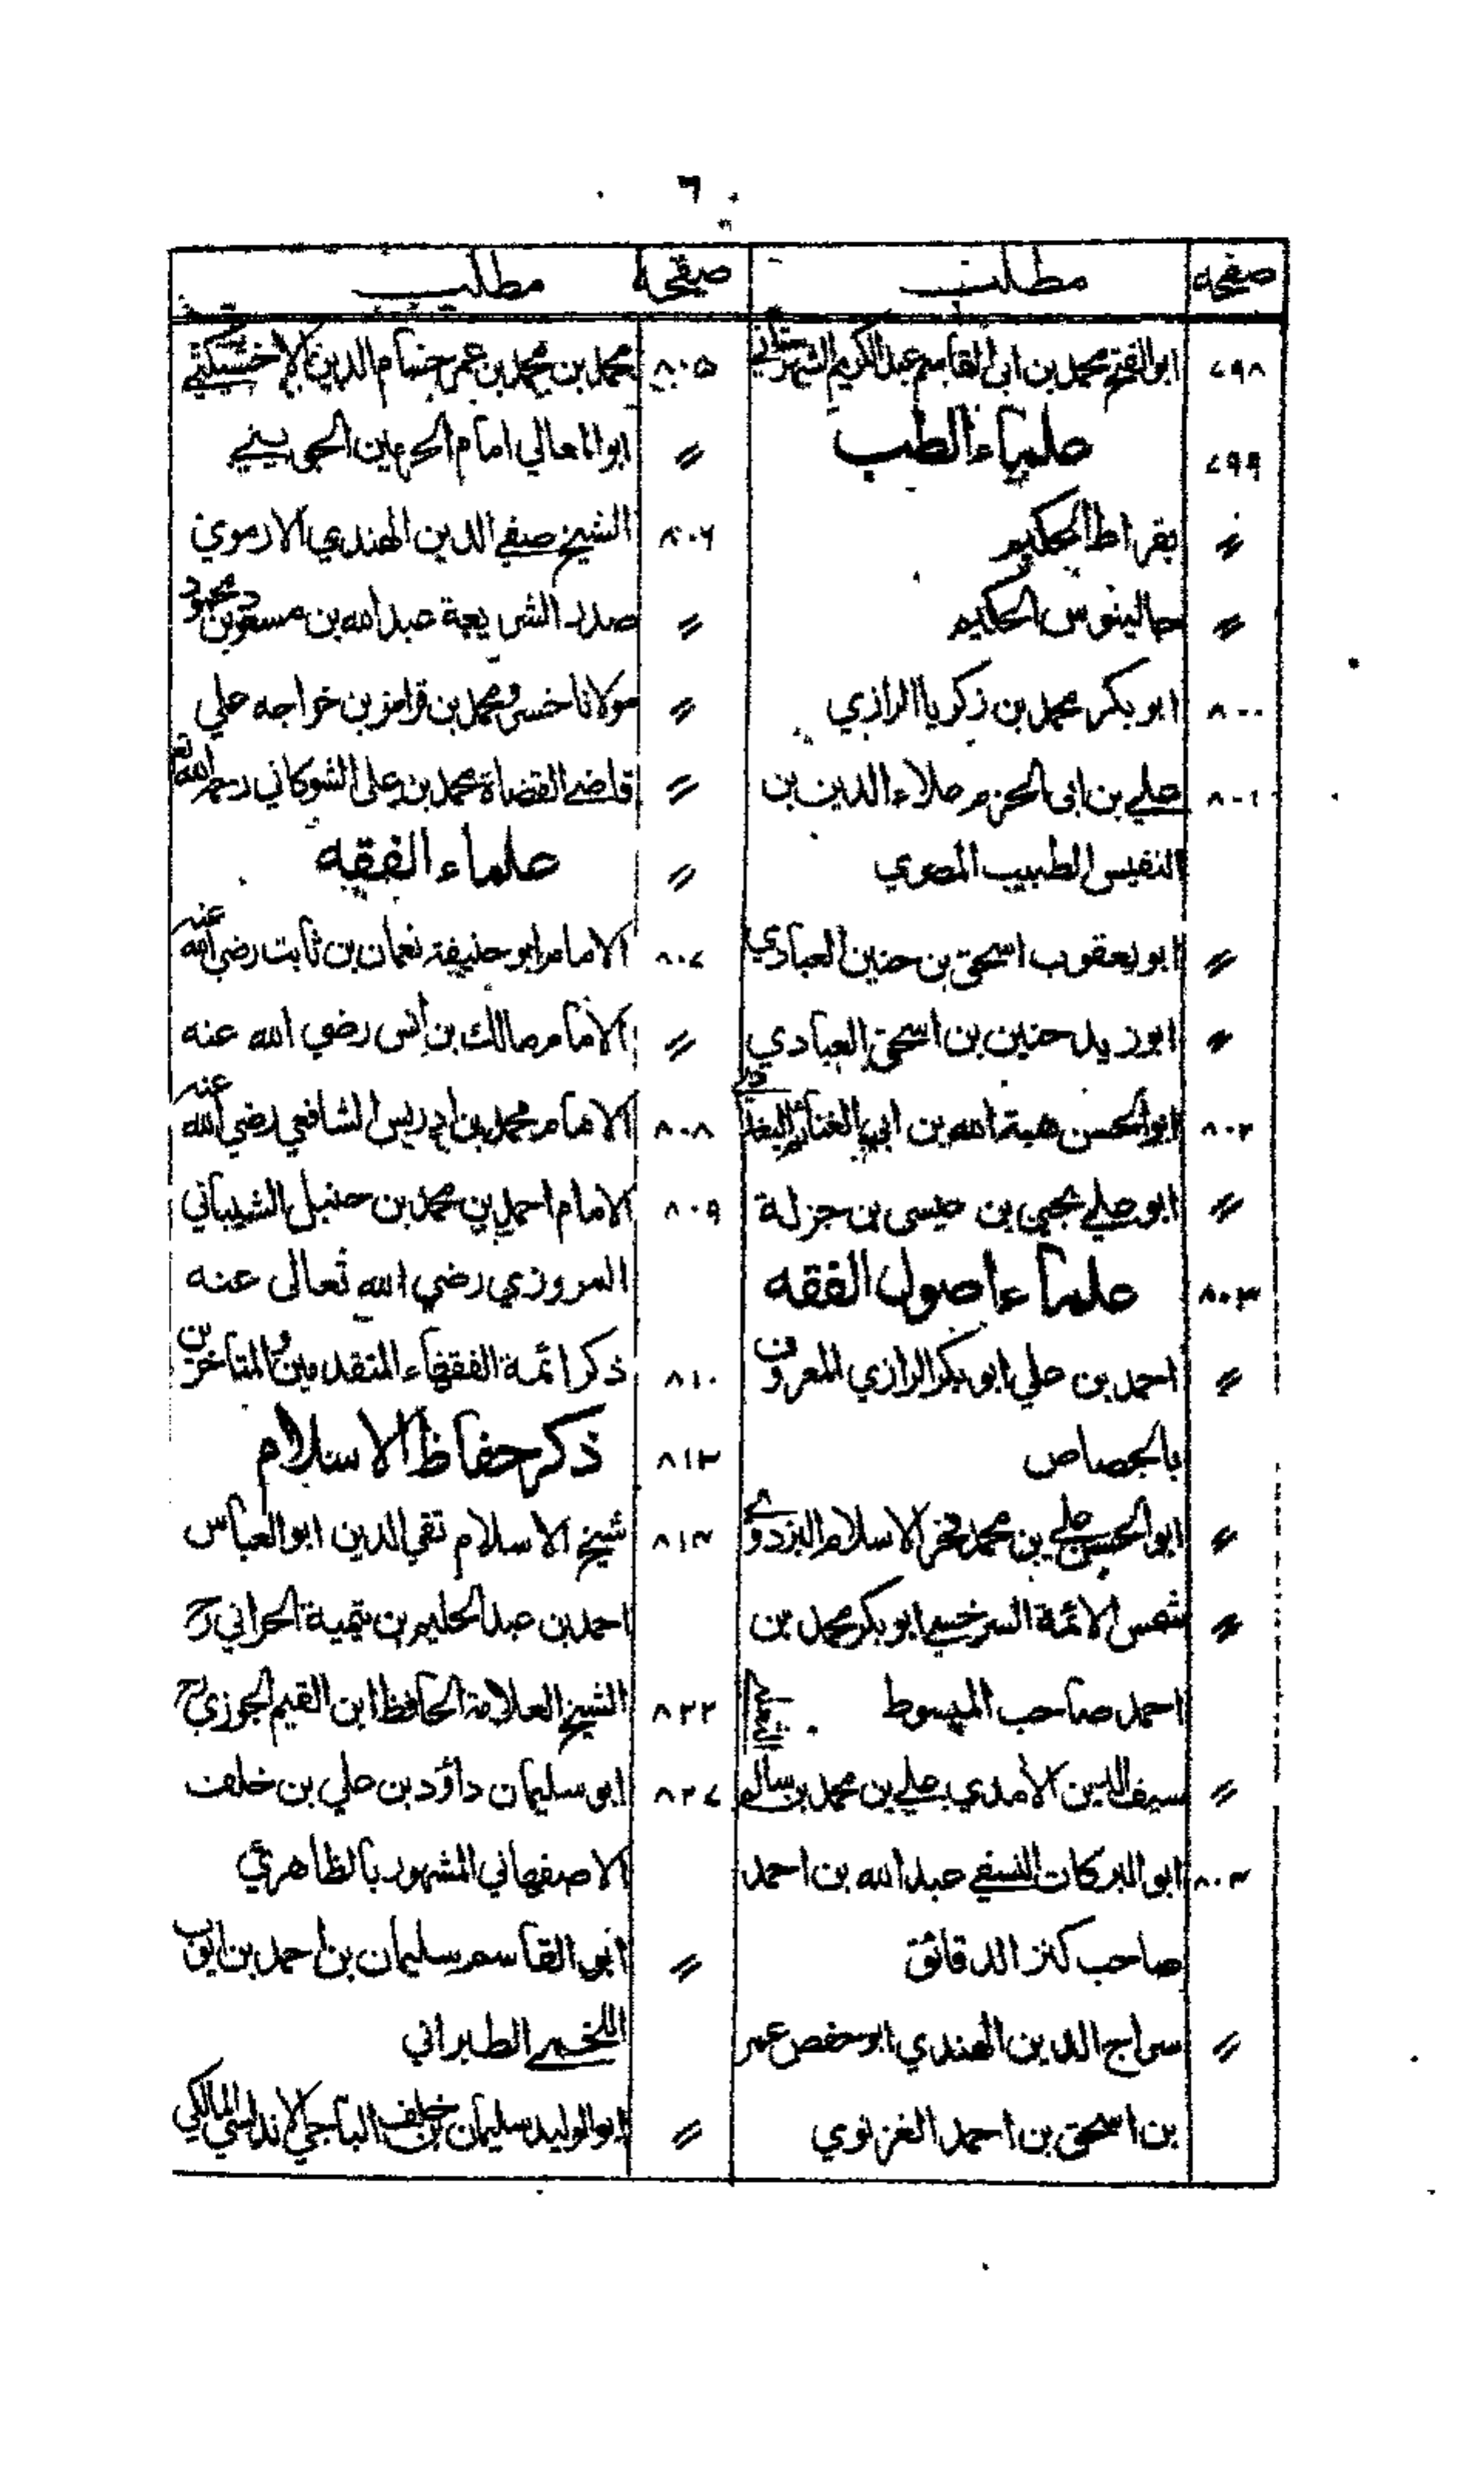 ٦
صفحه مطلب
٧٩٨ ابو الفتح محمد بن ابي القاسم عبد الكريم الشهرستاني
٧٩٩ علماء الطب
〃 بقراط الحكيم
〃 جالينوس الحكيم
٨٠٠ ابو بكر محمد بن زكريا الرازي
٨٠١ علي بن ابى الحزم علاء الدين بن
النفيس الطبيب المصري
〃 ابو يعقوب اسحق بن حنين العبادي
〃 ابو زيد حنين بن اسحق العبادي
٨٠٢ ابو الحسن هبة الله بن ابي الغنائم البغدادي
〃 ابو علي يحيى بن عيسى بن جزلة
٨٠٣ علماء اصول الفقه
〃 احمد بن علي ابو بكر الرازي المعروف
بالجصاص
〃 ابو الحسن علي بن محمد فخر الاسلام البزدوي
〃 شمس الائمة السرخسي ابو بكر محمد بن
احمد صاحب المبسوط
〃 سيف الدين الآمدي علي بن محمد بن سالم
٨٠٤ ابو البركات النسفي عبد الله بن احمد
صاحب كنز الدقائق
〃 سراج الدين الهندي ابو حفص عمر
بن اسحق بن احمد الغزنوي
صفحه مطلب
٨٠٥ محمد بن محمد بن عمر حسام الدين الاخسيكتي
〃 ابو المعالي امام الحرمين الجويني
٨٠٦ الشيخ صفي الدين الهندي الارموي
〃 صدر الشريعة عبد الله بن مسعود بن محمود
〃 مولانا خسرو محمد بن قرامز بن خواجه علي
〃 قاضي القضاة محمد بن علي الشوكاني رحمه الله تع
〃 علماء الفقه
٨٠٧ الامام ابو حنيفة نعمان بن ثابت رضي الله عنه
〃 الامام مالك بن انس رضي الله عنه
٨٠٨ الامام محمد بن ادريس الشافعي رضي الله عنه
٨٠٩ الامام احمد بن محمد بن حنبل الشيباني
المروزي رضي الله تعالى عنه
٨١٠ ذكر ائمة الفقهاء المتقدمين والمتاخرين
٨١٢ ذكر حفاظ الاسلام
٨١٣ شيخ الاسلام تقي الدين ابو العباس
احمد بن عبد الحليم بن تيمية الحراني رح
٨٢٢ الشيخ العلامة الحافظ ابن القيم الجوزي رح
٨٢٧ ابو سليمان داؤد بن علي بن خلف
الاصفهاني المشهور بالظاهري
〃 ابو القاسم سليمان بن احمد بن ايوب
اللخمي الطبراني
〃 ابو الوليد سليمان بن خلف الباجي الاندلسي المالكي